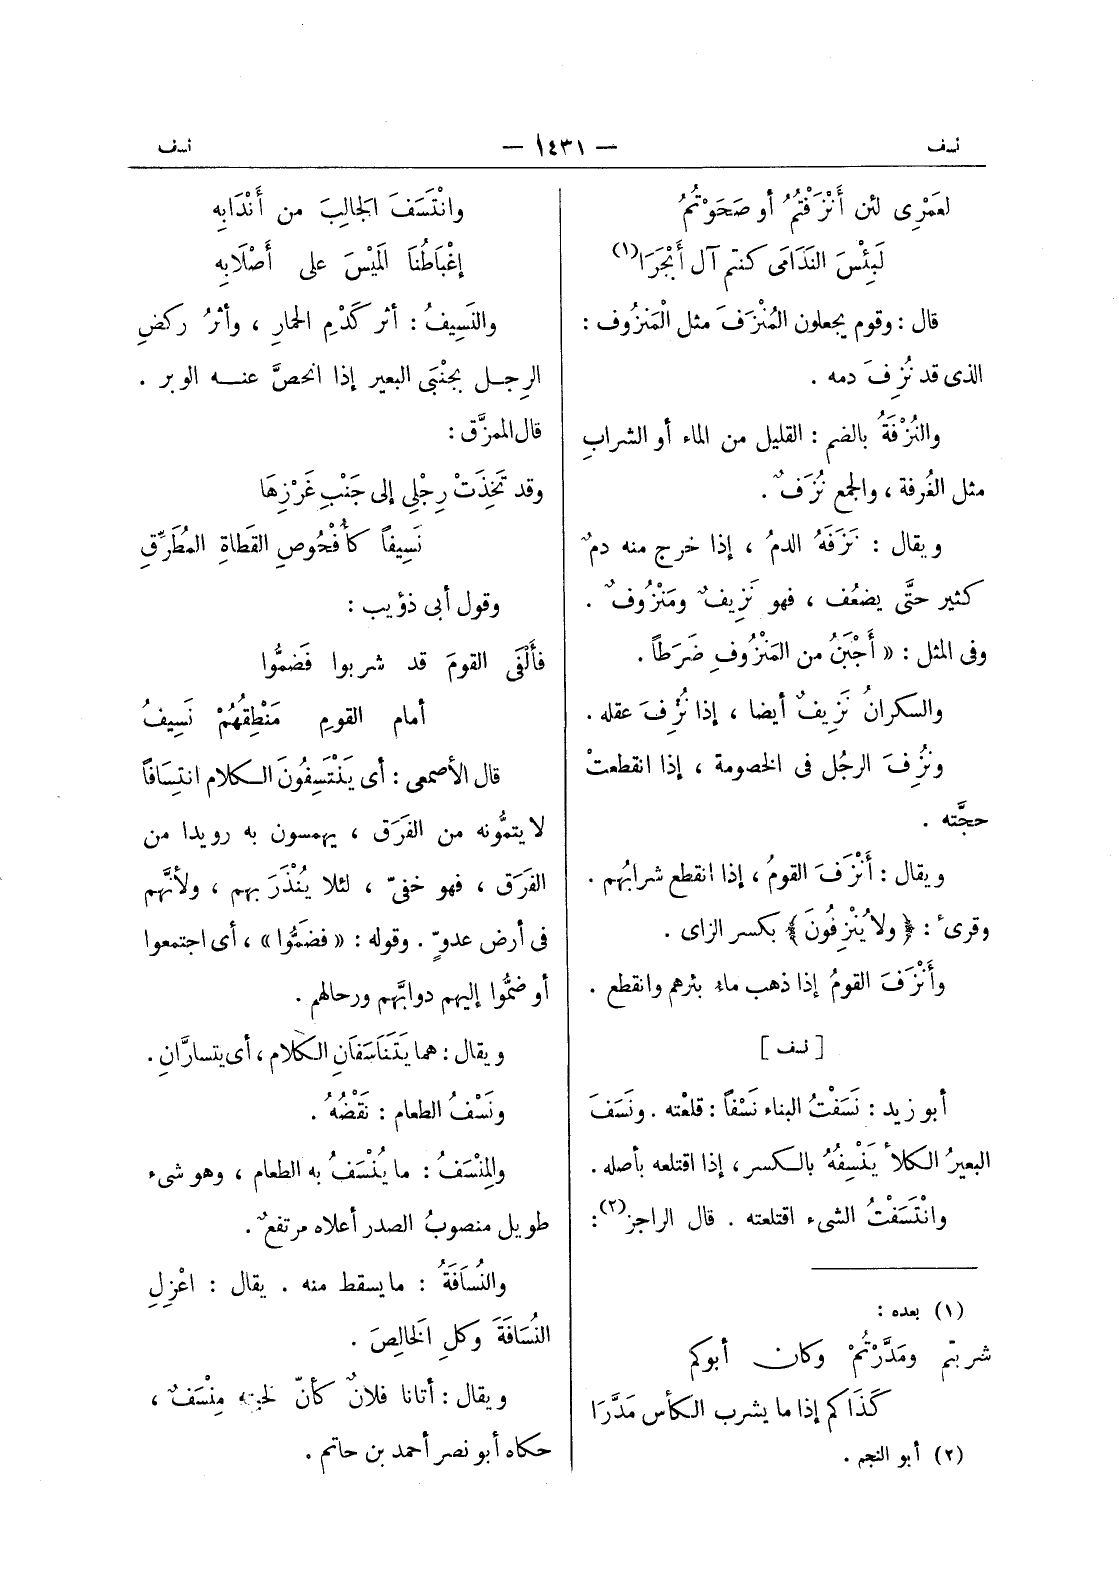 نسف
— ١٤٣١ —
نسف
لعَمْرِى لئن أَنْزَفْتُمُ أو صَحَوْتُمُ
لَبِئْسَ النَدَامَى كنتم آل أَبْجَرَا(١)
قال : وقوم يجعلون المُنْزَفَ مثل الْمَنْزُوف :
الذى قد نُزِفَ دمه .
والنُزْفَةُ بالضم : القليل من الماء أو الشرابِ
مثل الغُرفة ، والجمع نُزَفٌ .
ويقال : نَزَفَهُ الدمُ ، إذا خرج منه دمٌ
كثير حتَّى يضعُف ، فهو نَزِيفٌ ومَنْزُوفٌ .
وفى المثل : « أَجْبَنُ من المَنْزُوفِ ضَرَطاً .
والسكرانُ نَزِيفٌ أيضا ، إذا نُزِفَ عقله .
ونُزِفَ الرجُل فى الخصومة ، إذا انقطعتْ
حجَّته .
ويقال : أَنْزَفَ القومُ ، إذا انقطع شرابُهم .
وقرىء : ﴿ ولا يُنْزِفُونَ ﴾ بكسر الزاى .
وأَنْزَفَ القومُ إذا ذهب ماء بئرهم وانقطع .
[ نسف ]
أبو زيد : نَسَفْتُ البناء نَسْفاً : قلعْته . ونَسَفَ
البعيرُ الكلأ يَنْسِفُهُ بالكسر ، إذا اقتلعه بأصله .
وانْتَسَفْتُ الشىء اقتلعته . قال الراجز(٢) :
(١) بعده :
شربتم ومَدَّرْتُمْ وكان أبوكم
كَذَاكم إذا ما يشرب الكأس مَدَّرَا
(٢) أبو النجم .
وانْتَسَفَ الجالِبَ من أَنْدَابِهِ
إغْبَاطُنَا المَيْسَ على أَصْلَابِهِ
والنَسِيفُ : أثر كَدْمِ الحمارِ ، وأثرُ ركضِ
الرِجل بجَنْبَى البعير إذا انحصَّ عنه الوبر .
قال الممزَّق :
وقد تَخِذَتْ رِجْلِى إلى جَنْبِ غَرْزِهَا
نَسِيفاً كأُفْحُوصِ القَطَاةِ المُطَرِّقِ
وقول أبى ذؤيب :
فأَلْفَى القومَ قد شربوا فَضمُّوا
أمام القومِ مَنْطِقُهُمْ نَسِيفُ
قال الأصمعى : أى يَنْتَسِفُونَ الكلام انتِسَافاً
لا يتمُّونه من الفَرَق ، يهمسون به رويدا من
الفَرَق ، فهو خفىّ ، لئلا يُنْذَرَ بهم ، ولأنَّهم
فى أرض عدوٍّ . وقوله : « فضَمُّوا » ، أى اجتمعوا
أو ضمُّوا إليهم دوابَّهم ورحالهم .
ويقال : هما يَتَنَاسَفَانِ الكلام ، أى يتسارَّانِ .
ونَسْفُ الطعام : نَفْضُهُ .
والمِنْسَفُ : ما يُنْسَفُ به الطعام ، وهو شىء
طويل منصوبُ الصدر أعلاه مرتفعٌ .
والنُسَافَةُ : ما يسقط منه . يقال : اعْزِلِ
النُسَافَةَ وكلِ الخالِصَ .
ويقال : أتانا فلانٌ كأنّ لحيته مِنْسَفٌ ،
حكاه أبو نصر أحمد بن حاتم .